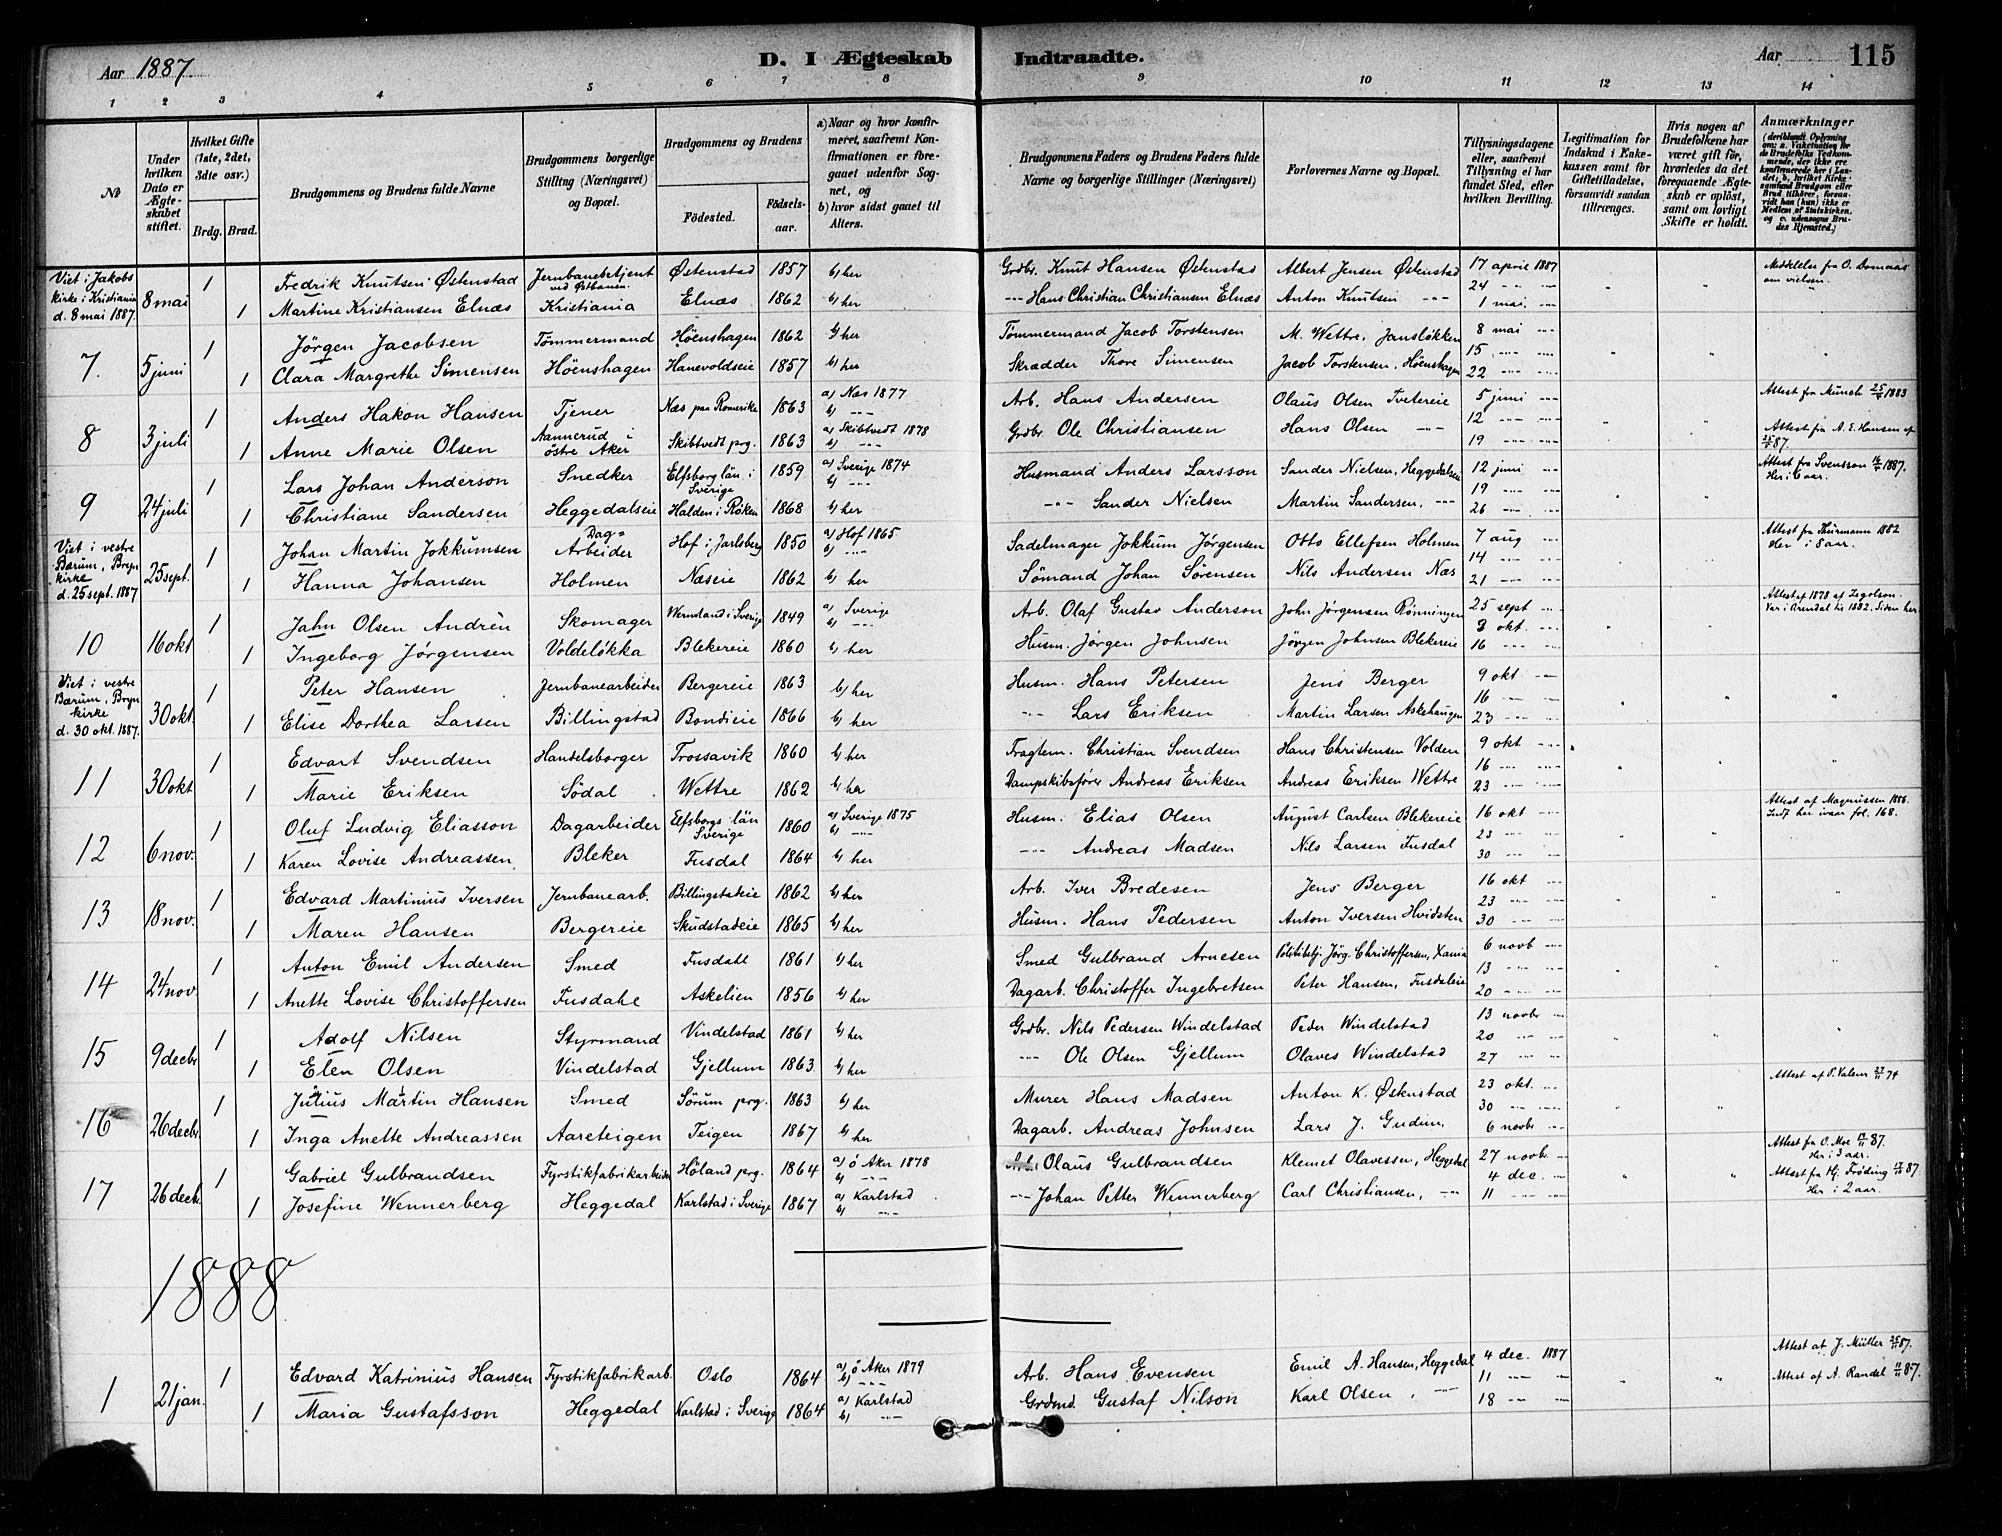 Aar 1887.
D. I Ægteskab Indtraadte.
Aar
115
1 2 3 4 5 6 7 8 9 10 11 12 13 14
No
Under hvilken Dato er Ægteskabet stiftet.
Hvilket Gifte (1ste, 2det, 3die osv.)
Brdg. Brud.
Brudgommens og Brudens fulde Navne
Brudgommens borgerlige Stilling (Næringsvei) og Bopæl.
Brudgommens og Brudens
Fødested. Fødselsaar.
a) Naar og hvor konfirmeret, saafremt Konfirmationen er foregaaet udenfor Sognet, og
b) hvor sidst gaaet til Alters.
Brudgommens Faders og Brudens Faders fulde Navne og borgerlige Stillinger (Næringsvei)
Forlovernes Navne og Bopæl.
Tillysningsdagene eller, saafremt Tillysning ei har fundet Sted, efter hvilken Bevilling.
Legitimation for Indskud i Enkekassen samt for Giftetilladelse, forsaavidt saadan tiltrænges.
Hvis nogen af Brudefolkene har været gift før, hvorledes da det foregaaende Ægteskab er opløst, samt om lovligt Skifte er holdt.
Anmærkninger (deriblandt Oplysning om: a. Vakcination for de Brudefolks Vedkommende, der ikke ere konfirmerede her i Landet; b. hvilket Kirkesamfund Brudgom eller Brud tilhører, forsaavidt han (hun) ikke er Medlem af Statskirken, og c. udensogns Brudes Hjemsted.)
Viet i Jakobs kirke i Kristiania d. 8 mai 1887. 8 mai 1 Fredrik Knutsen Østenstad Jernbanebetjent ved Østbanen Østenstad 1857 b) her Grdbr. Knut Hansen Østenstad Albert Jensen Østenstad 17 april 1887 Meddelelse fra O. Domaas om vielsen.
1 Martine Kristiansen Elnæs Kristiania Elnæs 1862 b) her --- Hans Christian Christiansen Elnæs Anton Knutsen --- 24 --- 1 mai ---
7. 5 juni 1 Jörgen Jacobsen Tømmermand Höenshagen 1862 b) her Tømmermand Jacob Torstensen M. Wettre, Jansløkken 8 mai ---
1 Clara Margrethe Simensen Höenshagen Hanevoldseie 1857 b) her Skrædder Thore Simensen Jacob Torstensen, Höenshagen 15 --- 22 ---
8 3 juli 1 Anders Hakon Hansen Tjener Næs paa Romerike 1863 a) Næs 1877 b) --- Arb. Hans Andersen Olaus Olsen Tveterie 5 juni --- Attest fra Munch 25/5 1883
1 Anne Marie Olsen Nannerud i östre Aker Skibtvedt prg. 1863 a) Skibtvedt 1878 b) --- Grdbr. Ole Christiansen Hans Olsen --- 12 --- 19 --- Attest fra A. E. Hansen af 87.
9 24 juli 1 Lars Johan Anderson Snedker Elfsborg län i Sverige 1859 a) Sverige 1874 b) --- Husmand Anders Larsson Sander Nielsen, Heggedalseie 12 juni --- Attest fra Svensson 1887. Her i 6 aar.
1 Christiane Sandersen Heggedalseie Halden i Røken 1868 b) her --- Sander Nielsen Martin Sandersen, --- 19 --- 26 ---
Viet i vestre Bærum, Bryn kirke d. 25 sept. 1887 25 sept. 1 Johan Martin Jokkumsen Dag-Arbeider Hof i Jarlsberg 1850 a) Hof 1865 b) --- Sadelmager Jokkum Jørgensen Otto Ellefsen Holmen 7 aug --- Attest fra Thurmann 1882 Her i 8 aar.
1 Hanna Johansen Holmen Næseie 1862 b) her Sömand Johan Sörensen Nils Andersen Næs 14 --- 21 ---
10 16 okt 1 Jahn Olsen Andrén Skomager Wermland i Sverige 1849 a) Sverige b) --- Arb. Olaf Gustav Anderson John Jörgensen Rønningen 25 sept --- Attest af 1878 af Legolson. Var i Arendal til 1882. Siden her
1 Ingeborg Jørgensen Voldeløkka Blekereie 1860 b) her Husm. Jørgen Johnsen Jörgen Johnsen Blekereie 9 okt. --- 16 ---
Viet i vestre Bærum, Bryn kirke d. 30 okt. 1887. 30 okt. 1 Peter Hansen Jernbanearbeider Bergereie 1863 b) her Husm. Hans Petersen Jens Berger 9 okt ---
1 Elise Dorthea Larsen Billingstad Bondieie 1866 b) her --- Lars Eriksen Martin Larsen Askehaugen 16 --- 23 ---
11 30 okt 1 Edvart Svendsen Handelsborger Trossavik 1860 b) her Fragtem. Christian Svendsen Hans Christensen Volden 9 okt ---
1 Marie Eriksen Södal Wettre 1862 b) her Dampskibsfører Andreas Eriksen Andreas Eriksen Wettre 16 --- 23 ---
12 6 nov. 1 Oluf Ludvig Eliasson Dagarbeider Elfsborgs län Sverige 1860 a) Sverige 1875 b) --- Husm. Elias Olsen August Carlsen Blekereie 16 okt --- Attest af Magnussen 1886. Indf her ivaar fol. 168.
1 Karen Lovise Andreassen Bleker Fusdal 1864 b) her --- Andreas Madsen Nils Larsen Fusdal 23 --- 30 ---
13 18 nov. 1 Edvard Martinius Iversen Jernbanearb. Billingstadeie 1862 b) her Arb. Iver Bredesen Jens Berger 16 okt ---
1 Maren Hansen Bergereie Skudstadeie 1865 b) her Husm. Hans Pedersen Anton Iversen Hvidsten 23 --- 30 ---
14 24 nov. 1 Anton Emil Andersen Smed Fusdahl 1861 b) her Smed Gulbrand Arnesen Politibetj. Jörg. Christoffersen, Xania 6 novb ---
1 Anette Lovise Christoffersen Fusdahl Askelien 1856 b) her Dagarb. Christoffer Ingebretsen Peter Hansen, Fusdaleie 13 --- 20 ---
15 9 decbr 1 Adolf Nilsen Styrmand Vindelstad 1861 b) her Grdbr. Nils Pedersen Windelstad Peder Windelstad 13 novbr ---
1 Elen Olsen Vindelstad Gjellum 1863 b) her --- Ole Olsen Gjellum Olaves Windelstad 20 --- 27 ---
16 26 decbr. 1 Julius Martin Hansen Smed Sörum prg. 1863 b) her Murer Hans Madsen Anton K. Østenstad 23 okt. --- Attest af P. Valeur 27/11 74
1 Inga Anette Andreassen Aareteigen Teigen 1867 b) her Dagarb. Andreas Johnsen Lars J. Gudim 30 --- 6 novbr ---
17 26 decb. 1 Gabriel Gulbrandsen Fyrstikfabrikarbeider Höland prg. 1864 a) ö Aker 1878 b) --- Arb. Olaus Gulbrandsen Klemet Olavessen, Heggedal 27 novbr --- Attest fra O. Moe 87. Her i 3 aar.
1 Josefine Wennerberg Heggedal Karlstad i Sverige 1867 a) Karlstad b) --- --- Johan Petter Wennerberg Carl Christiansen, --- 4 dec. --- 11 --- Attest fra Hj. Fröding 87 Her i 2 aar.
1888
1 21 jan. 1 Edvard Katrinius Hansen Fyrstikfabrikarb. Oslo 1864 a) ö Aker 1879 b) --- Arb. Hans Evensen Emil A. Hansen, Heggedal 4 dec. 1887 Attest af J. Müller 25/11 87.
1 Maria Gustafsson Heggedal Karlstad i Sverige 1864 a) Karlstad b) --- Grdmd. Gustaf Nilson Karl Olsen, --- 11 --- 18 --- Attest af A. Randel 11/11 87.